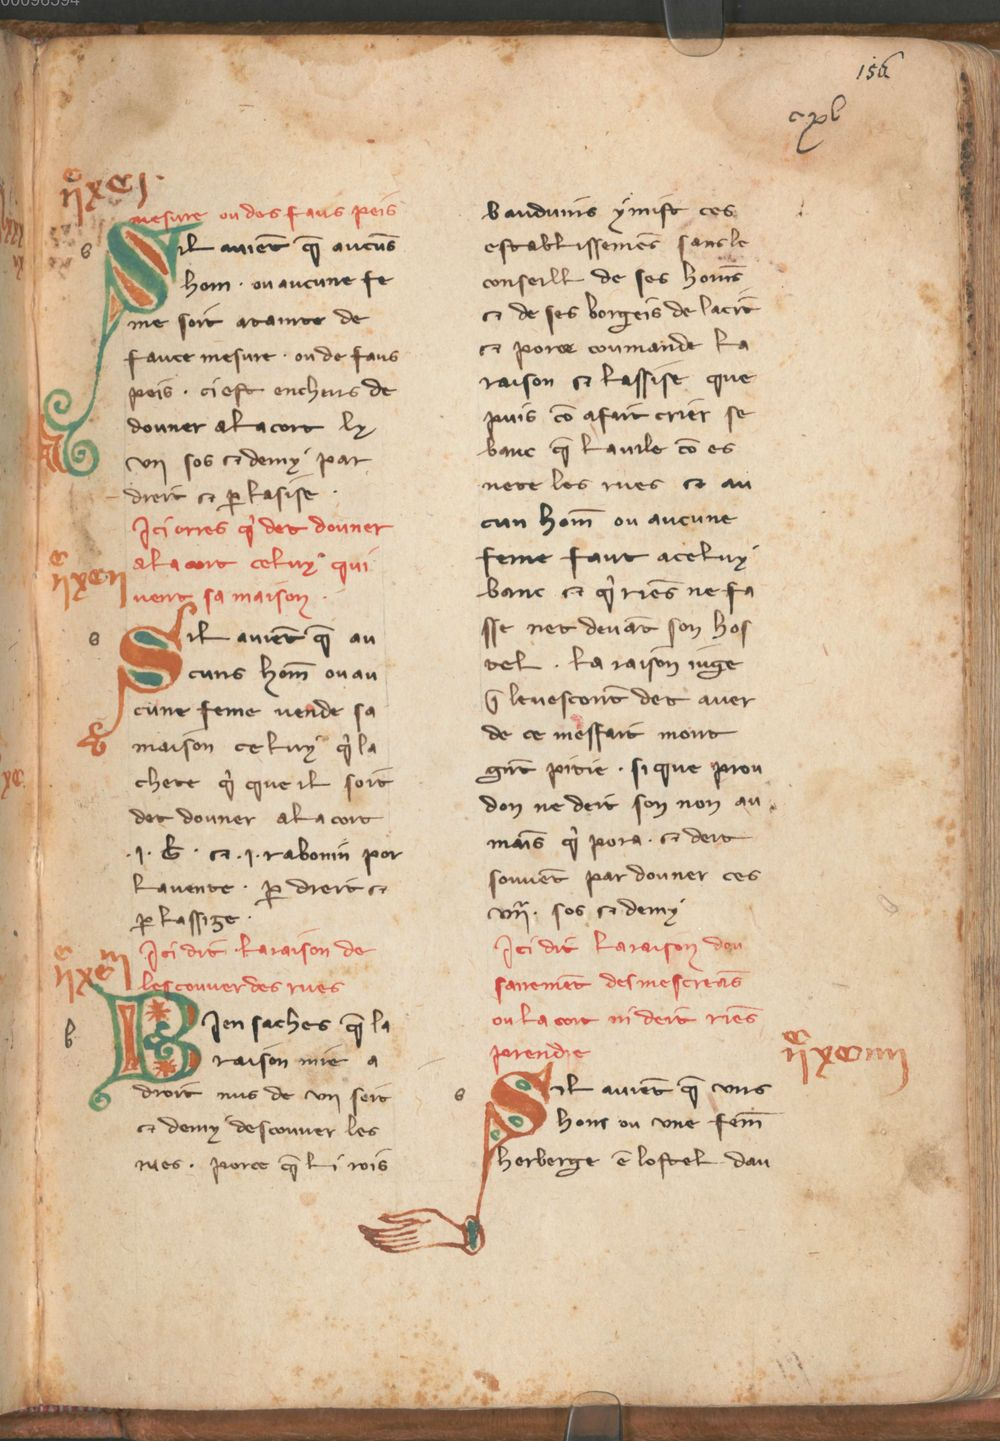 156
cxl
mesure ou des faus peis
Sil auiẽt q̃ aucũs
hom · ou aucune fe
me soit atainte de
fauce mesure · ou de faus
peis · ci est encheus de
douner a la cort ·lx·
vii sos et demy par
dreit et ꝑ lasise ·
Ici orres q̃ det douner
a la cort celuy qui
vent sa maison ·
Sil auiẽt q̃ au
cuns hom̃ ou au
cune feme vende sa
maison celuy q̃ la
chete q̃ que il soit
det douner a la cort
·i· b̃ · et ·i· rabouin por
la vente · ꝑ dreit et
ꝑ lassize ·
Ici dit la raison de
les couver des rues
Bien saches q̃ la
raison mie a
droit nus de vii seit
et demy descouver les
rues · porce q̃ li rois
bauduins y mist ces
establissemẽs sans le
conseill de ses homẽs
et de ses borgeis de la cit
et porce coumande la
raison et lassise que
puis cõ a fait crier se
banc q̃ la uile cõ es
nete les rues et au
cun hom̃ ou aucune
feme faut a celuy
banc et q̃ riẽs ne fa
sse net deuãt son hos
tel · la raison iuge
q̃ le uescont det auer
de ce meffait mout
grãt pitie · si que prou
don ne deit son non au
mais q̃ pora · et deit
souuẽt pardouner ces
vii · sos et demy
Ici dit la raison dou
sairemẽt des mescreãs
ou la cort ni deit riẽs
prendre
Sil auiẽt q̃ vns
hons ou vne fem̃
herberge ẽ lostel dau